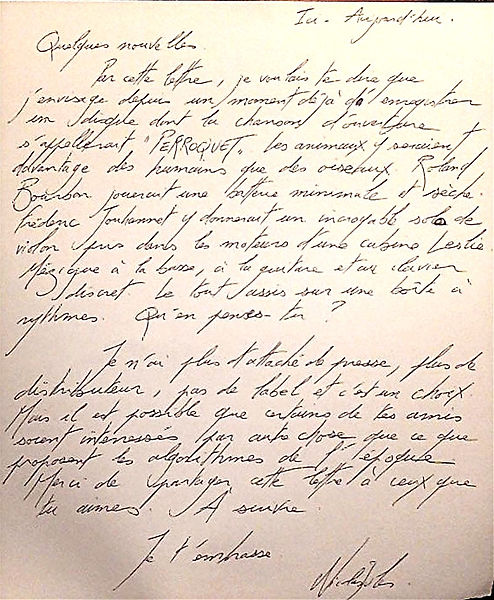 Ici - Aujourd'hui.
Quelques nouvelles.
Par cette lettre, je voulais te dire que
j'envisage depuis un moment déjà d'enregistrer
un disque dont la chanson d'ouverture
s'appellerait "PERROQUET". Les animaux y seraient
davantage des humains que des oiseaux. Roland
Bourbon jouerait une batterie minimale et sèche.
Frédéric y donnerait un incroyable solo de
violon pris dans les moteurs d'une cabine Leslie.
à la basse, à la guitare et au clavier
discret. Le tout assis sur une boîte à
rythmes. Qu'en penses-tu ?
Je n'ai plus d'attaché de presse, plus de
distributeur, pas de label, et c'est un choix.
Mais il est possible que certains de tes amis
soient intéressés par autre chose que ce que
proposent les algorithmes de l'époque.
Merci de partager cette lettre à ceux que
tu aimes. À suivre
Je t'embrasse